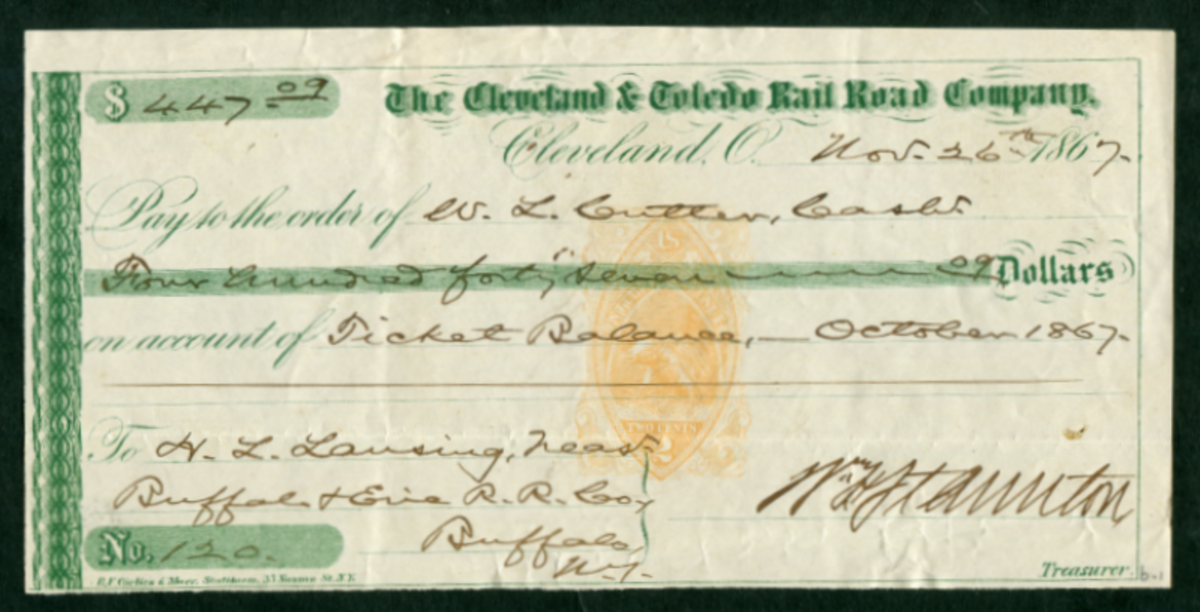 $ 447 09
The Cleveland & Toledo Rail Road Company.
Cleveland, O. Nov. 26th 1867.
Pay to the order of W. L. Cutter, Cashr
Four hundred forty seven 09 Dollars
on account of Ticket Balance, — October 1867.
To H. L. Lansing, Treasr
Buffalo & Erie R. R. Co,
Buffalo,
N.Y.
Wm H Staunton
Treasurer.
No. 120.
TWO CENTS
2